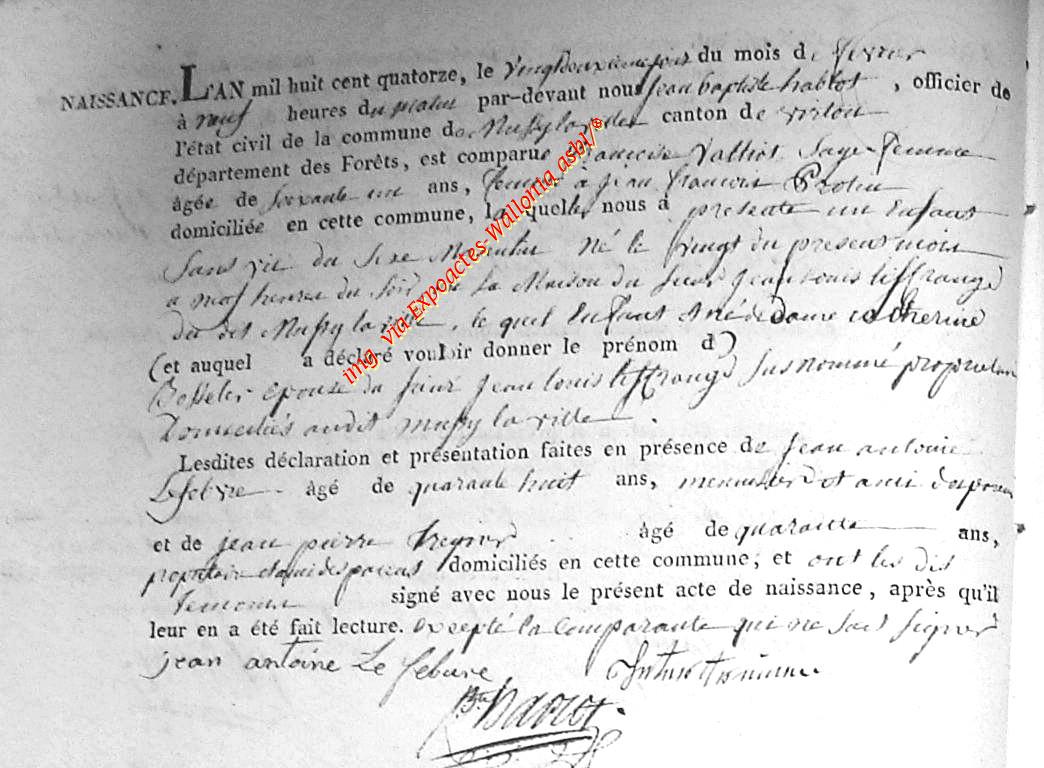 NAISSANCE. L'AN mil huit cent quatorze, le vingtdeuxieme jour du mois de fevrier
à neuf heures du matin par-devant nous jean baptiste hablot, officier de
l'état civil de la commune de Mussy la ville canton de virton
département des Forêts, est comparue françoise Sage-femme
âgée de soixante un ans, femme à jean françois
domiciliée en cette commune, laquelle nous a presenté un Enfant
Sans vie du Sexe Masculin né le vingt du present mois
a neuf heures du Soir de la Maison du Sieur jean louis tiffrange
du dit Mussy la ville, le quel Enfant Est né de dame catherine
(et auquel a déclaré vouloir donner le prénom d)
Epouse du Sieur jean louis tiffrange Susnommé propriétaire
Domiciliés audit mussy la ville.
Lesdites déclaration et présentation faites en présence de jean antoine
Lefebvre âgé de quarante huit ans, et ami
et de jean pierre âgé de quarante ans,
proprietaire et ami des parens domiciliés en cette commune; et ont les dis
temoins signé avec nous le présent acte de naissance, après qu'il
leur en a été fait lecture. excepté la Comparante qui ne sait signer
jean antoine Le febvre
img. via Expoactes-Wallonia asbl/®